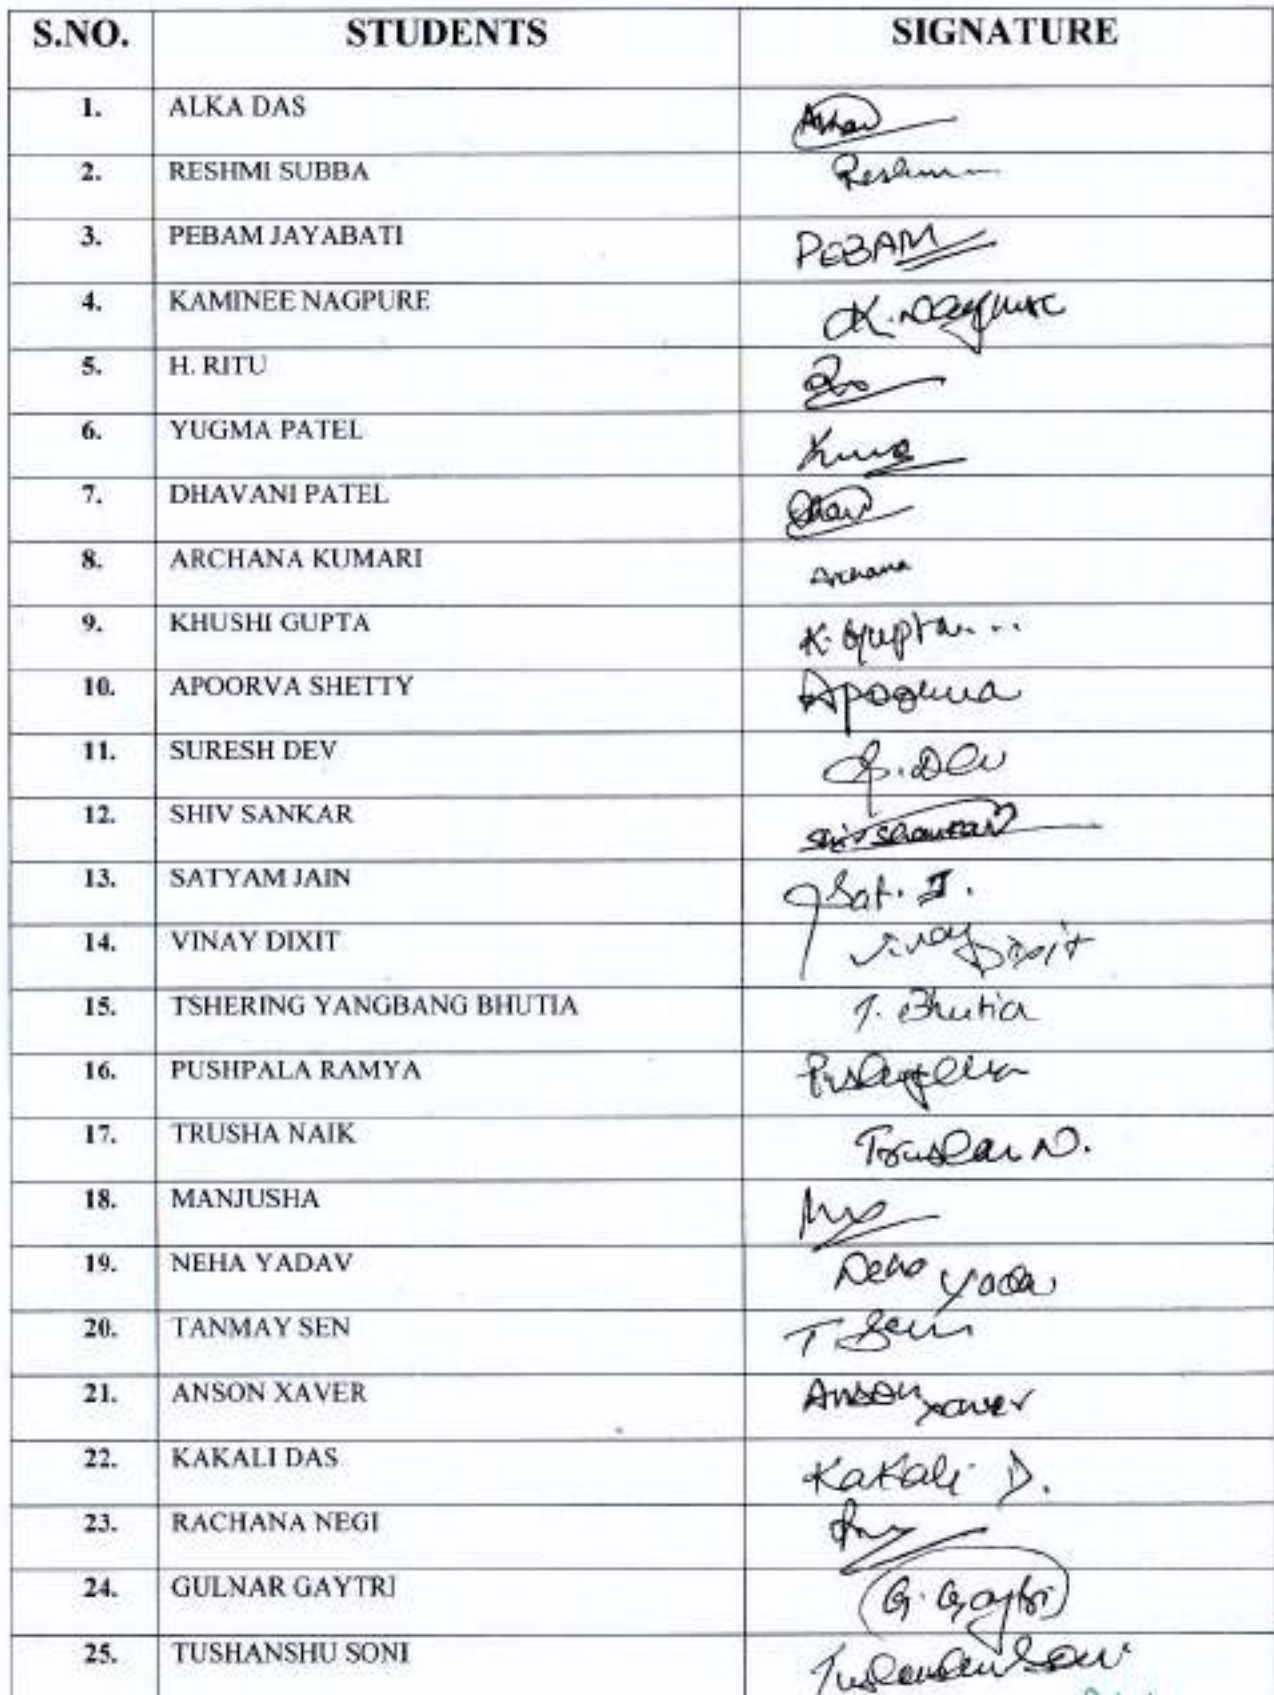 S.NO. STUDENTS SIGNATURE
1. ALKA DAS
2. RESHMI SUBBA
3. PEBAM JAYABATI PEBAM
4. KAMINEE NAGPURE
5. H. RITU
6. YUGMA PATEL
7. DHAVANI PATEL
8. ARCHANA KUMARI Archana
9. KHUSHI GUPTA K. Gupta...
10. APOORVA SHETTY
11. SURESH DEV S. Dev
12. SHIV SANKAR Shiv Shankar
13. SATYAM JAIN Sat. J.
14. VINAY DIXIT Vinay Dixit
15. TSHERING YANGBANG BHUTIA T. Bhutia
16. PUSHPALA RAMYA
17. TRUSHA NAIK
18. MANJUSHA
19. NEHA YADAV
20. TANMAY SEN T Sen
21. ANSON XAVER Anson Xaver
22. KAKALI DAS Kakali D.
23. RACHANA NEGI
24. GULNAR GAYTRI G. Gaytri
25. TUSHANSHU SONI